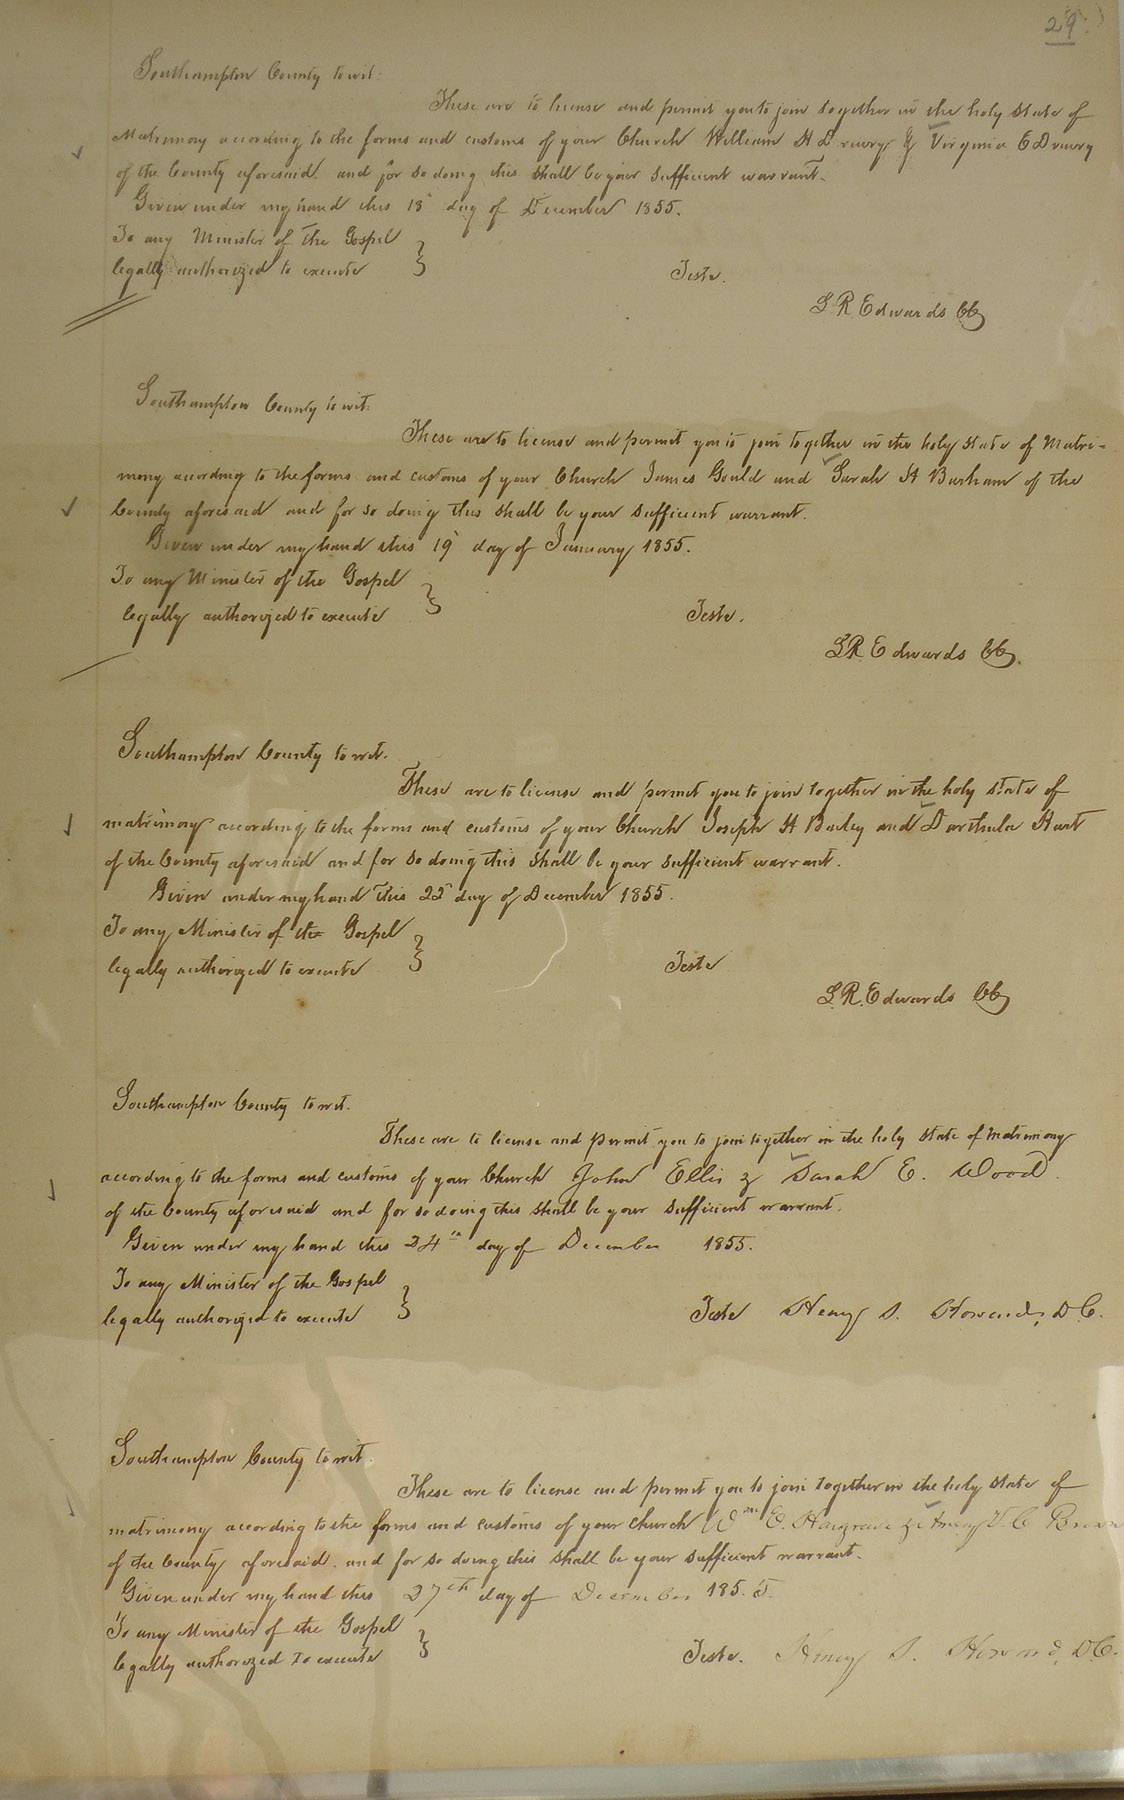 29.
Southampton County to wit:
These are to license and permit you to join together in the holy state of
Matrimony according to the forms and customs of your Church William H Drewry & Virginia E Drewry
of the County aforesaid and for so doing this shall be your sufficient warrant.
Given under my hand this 18 day of December 1855.
To any Minister of the Gospel
legally authorized to execute
Teste.
L R Edwards CC
Southampton County to wit:
These are to license and permit you to join together in the holy state of Matri-
mony acording to the forms and customs of your Church James Gould and Sarah H Barham of the
County aforesaid and for so doing this shall be your sufficient warrant.
Given under my hand this 19 day of January 1855.
To any Minister of the Gospel
legally authorized to execute
Teste.
L R Edwards CC.
Southampton County to wit.
These are to license and permit you to join together in the holy state of
matrimony according to the forms and customs of your Church Joseph H Bailey and Darthula Hart
of the County aforesaid and for so doing this shall be your sufficient warrant.
Given under my hand this 22 day of December 1855.
To any Minister of the Gospel
legally authorized to execute
Teste
L. R. Edwards CC
Southampton County to wit.
These are to license and permit you to join together in the holy state of matrimony
according to the forms and customs of your Church John Ellis & Sarah E. Wood.
of the County aforesaid and for so doing this shall be your sufficient warrant.
Given under my hand this 24th day of December 1855.
To any Minister of the Gospel
legally authorized to execute
Teste Henry S. Howard, D.C.
Southampton County to wit.
These are to license and permit you to join together in the holy state of
matrimony according to the forms and customs of your church Wm E. Hargrave & C Brown
of the County aforesaid. and for so doing this shall be your sufficient warrant.
Given under my hand this 27th day of December 185.5.
To any Minister of the Gospel
legally authorized to execute
Teste. Henry S. Howard, D.C.